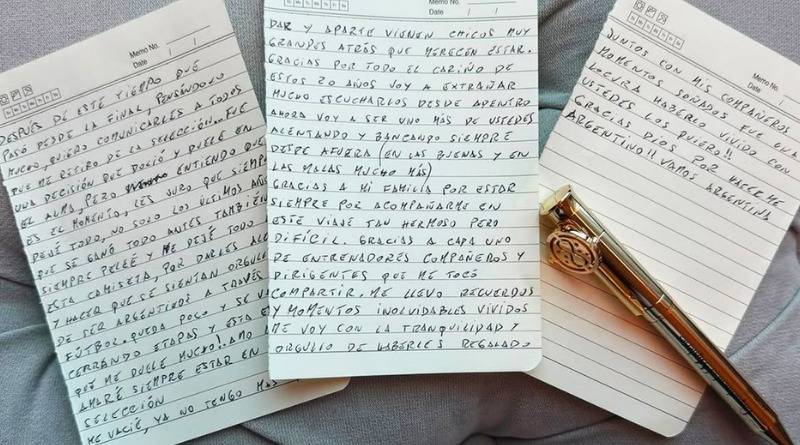 Memo No.
Date
DESPUÉS DE ESTE TIEMPO QUE
PASÓ DESDE LA FINAL, PENSÁNDOLO
MUCHO, QUIERO COMUNICARLES A TODOS
QUE ME RETIRO DE LA SELECCIÓN. FUE
UNA DECISIÓN QUE DOLIÓ Y DUELE EN
EL ALMA, PERO ENTIENDO QUE
ES EL MOMENTO, LES JURO QUE SIEMPRE
DEJÉ TODO, NO SOLO LOS ÚLTIMOS AÑOS
QUE SE GANÓ TODO ANTES TAMBIÉN
SIEMPRE PELEÉ Y ME DEJÉ TODO
ESTA CAMISETA, POR DARLES
Y HACER QUE SE SIENTAN
DE SER ARGENTINOS A TRAVÉS
FÚTBOL. QUEDA POCO Y SE
CERRANDO ETAPAS Y ESTA
QUE ME DUELE MUCHO!. AMO
AMARÉ SIEMPRE ESTAR EN
SELECCIÓN
ME VACIÉ, YA NO TENGO MÁS
Memo No.
Date
DAR Y APARTE VIENEN CHICOS MUY
GRANDES ATRÁS QUE MERECEN ESTAR.
GRACIAS POR TODO EL CARIÑO DE
ESTOS 20 AÑOS VOY A EXTRAÑAR
MUCHO ESCUCHARLOS DESDE ADENTRO
AHORA VOY A SER UNO MÁS DE USTEDES
ALENTANDO Y BANCANDO SIEMPRE
DESDE AFUERA (EN LAS BUENAS Y EN
LAS MALAS MUCHO MÁS)
GRACIAS A MI FAMILIA POR ESTAR
SIEMPRE POR ACOMPAÑARME EN
ESTE VIAJE TAN HERMOSO PERO
DIFÍCIL. GRACIAS A CADA UNO
DE ENTRENADORES COMPAÑEROS Y
DIRIGENTES QUE ME TOCÓ
COMPARTIR. ME LLEVO RECUERDOS
Y MOMENTOS INOLVIDABLES VIVIDOS
ME VOY CON LA TRANQUILIDAD Y
ORGULLO DE HABERLES REGALADO
Memo No.
Date
JUNTOS CON MIS COMPAÑEROS
MOMENTOS SOÑADOS FUE UNA
LOCURA HABERLO VIVIDO CON
USTEDES LOS QUIERO!!
GRACIAS DIOS POR HACERME
ARGENTINO!! VAMOS ARGENTINA